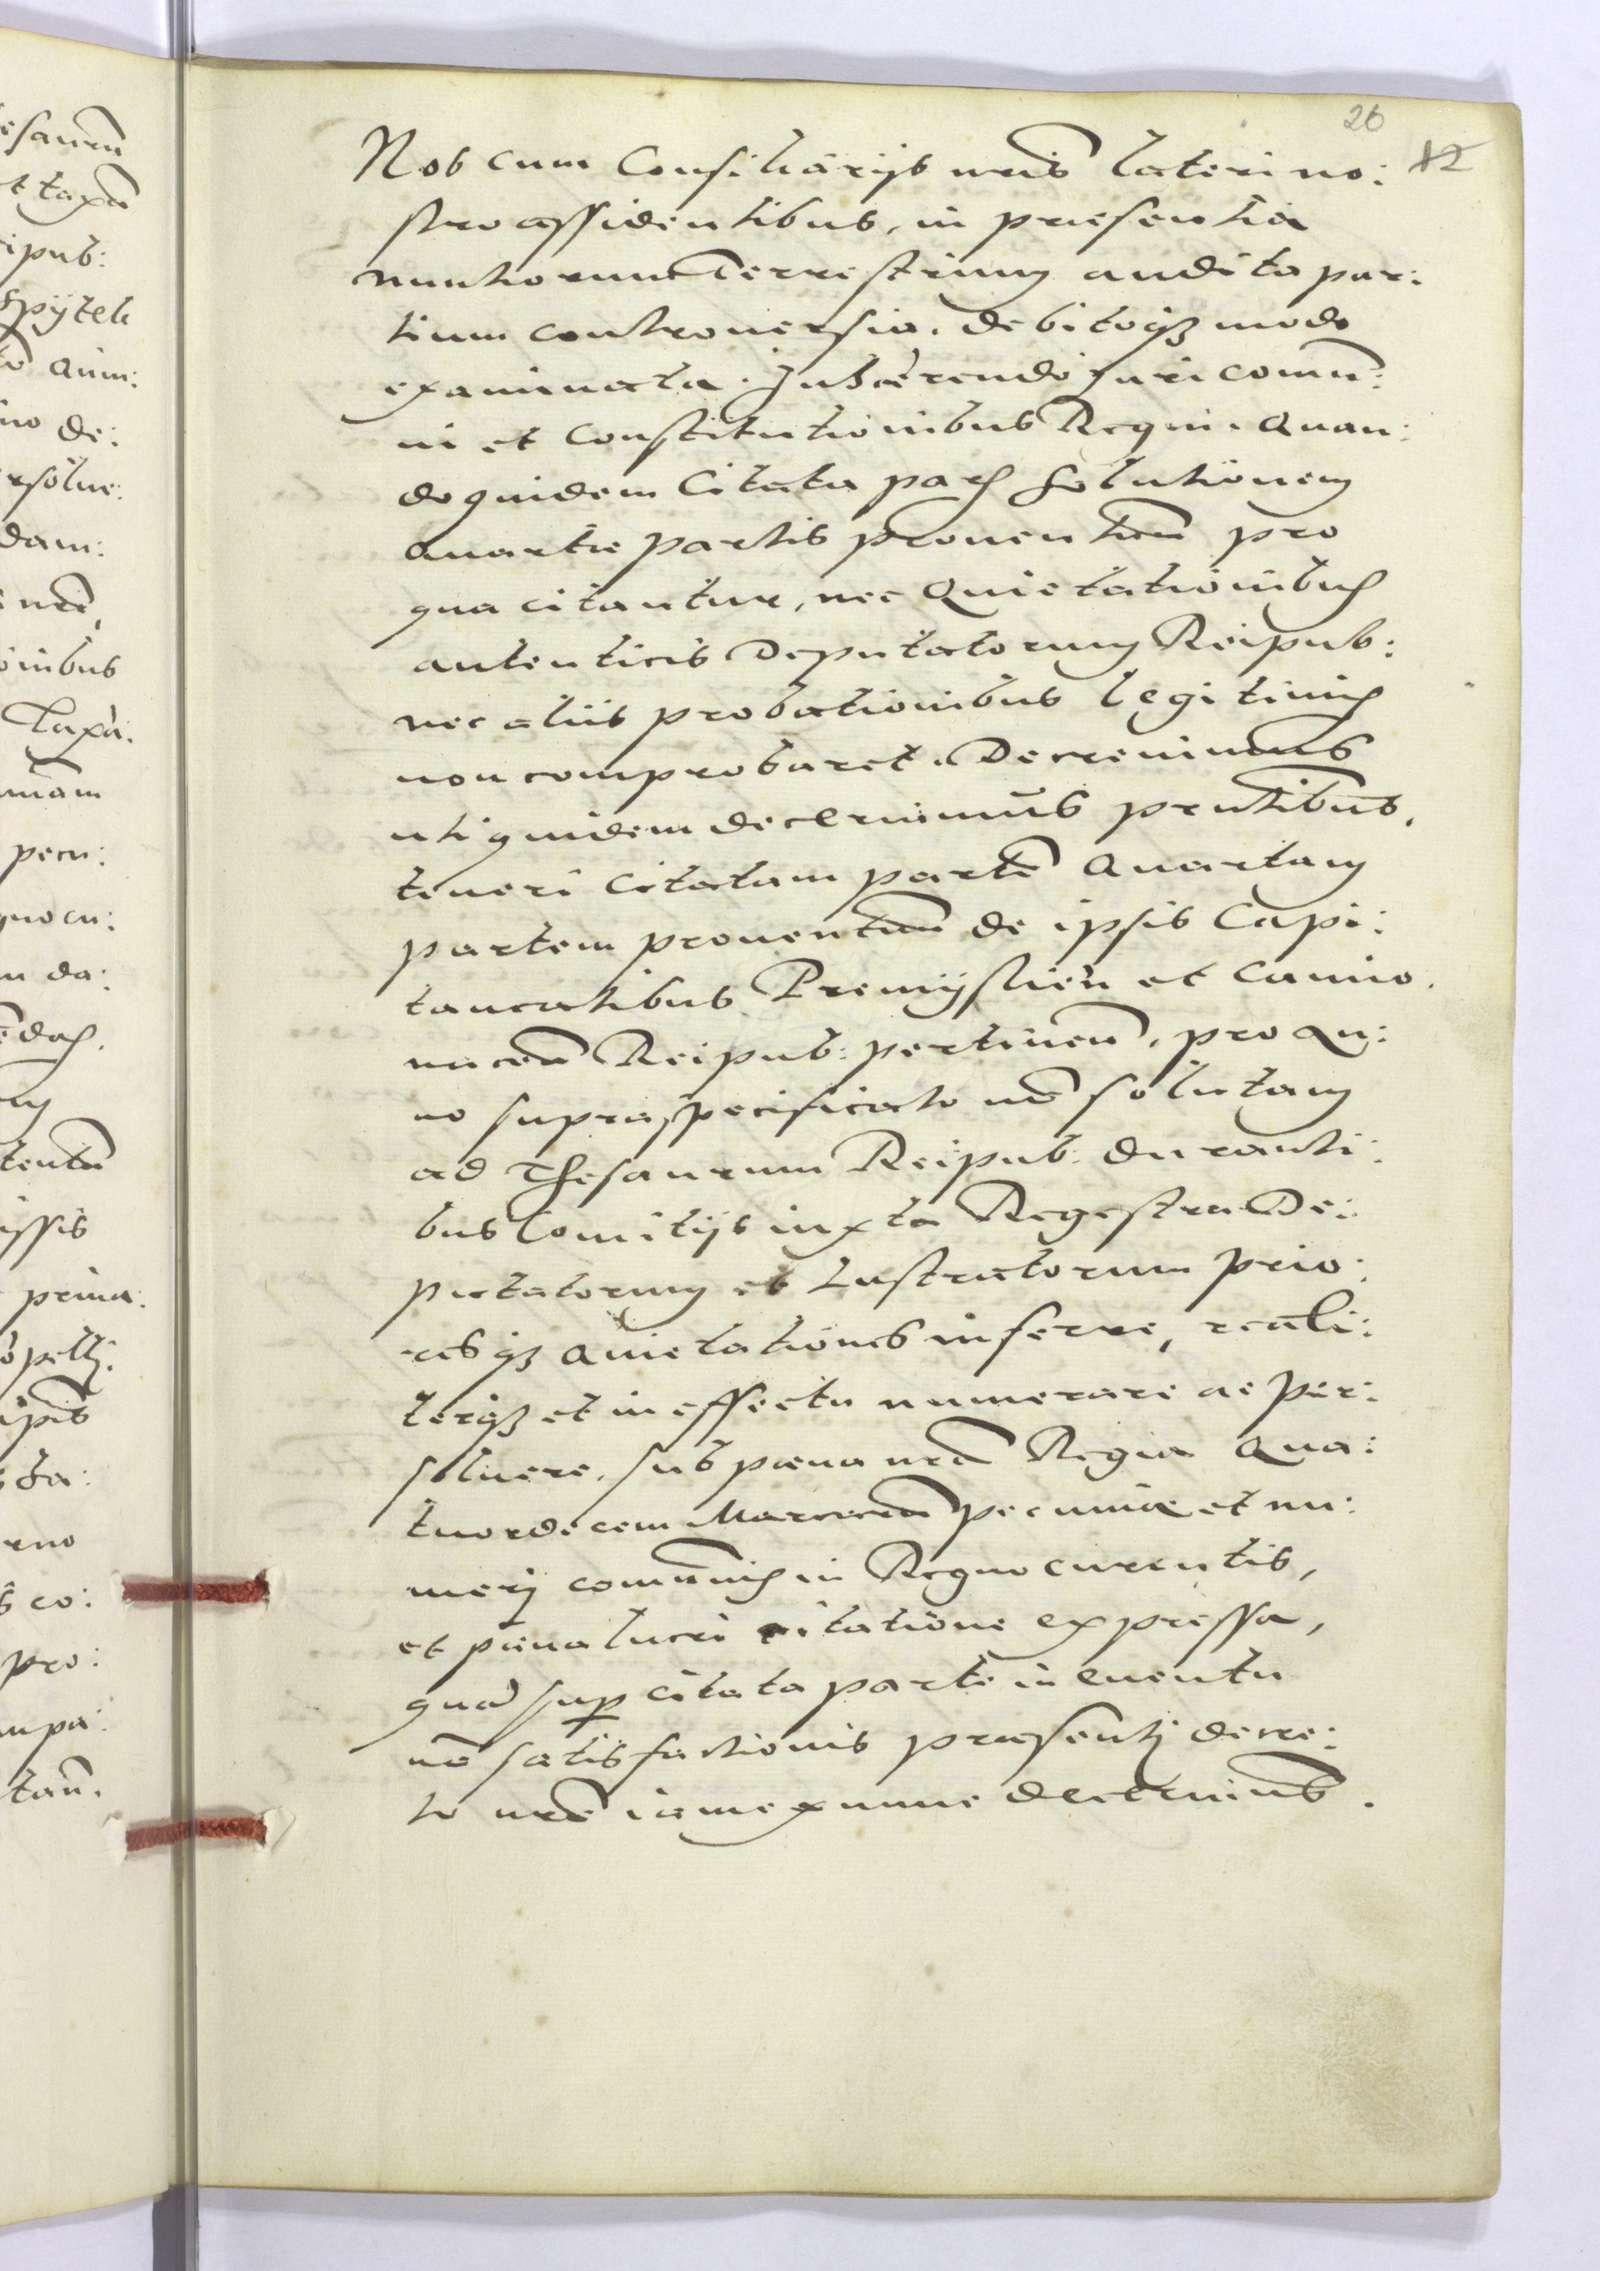 26
12
Nos cum Consiliarijs nr̃is lateri no:
stro assidentibus, in præsentia
nuntiorum Terrestrium audita par:
tium controuersia. debitoqꝫ modo
examinata. Inhærendo Iuri comũ:
ni et Constitutionibus Regni. Quan:
doquidem Citata pars solutionem
quartæ partis prouentuũ pro
qua citantur, nec Quietationibus
autenticis Deputatorum Reipub:
nec aliis probationibus legitimis
non comprobaret. Decreuimus
uti quidem decernimus pñtibus,
teneri Citatam partẽ Quartam
partem prouentuũ de ipsis Capi:
taneatibus Præmijslieñ et Camio.
naceñ Reipub: pertineñ, pro An:
no supraspecificato nõ solutam
ad Thesaurum Reipub: duranti:
bus Comitijs iuxta Regestra De:
putatorum et Lustratorum prio:
resqꝫ Quietationes inferre, reali:
terqꝫ et in effectu numerare ac per:
soluere, sub pœna nr̃a Regia Qua:
tuordecem Marcarũ pecuniæ et nu:
merj comũnis in Regno currentis,
et pœna lucri citatione expressa,
quã sup citata parte in euentu
nõ satisfactionis præsentj decre:
to nr̃o iam ex nunc decernimus.